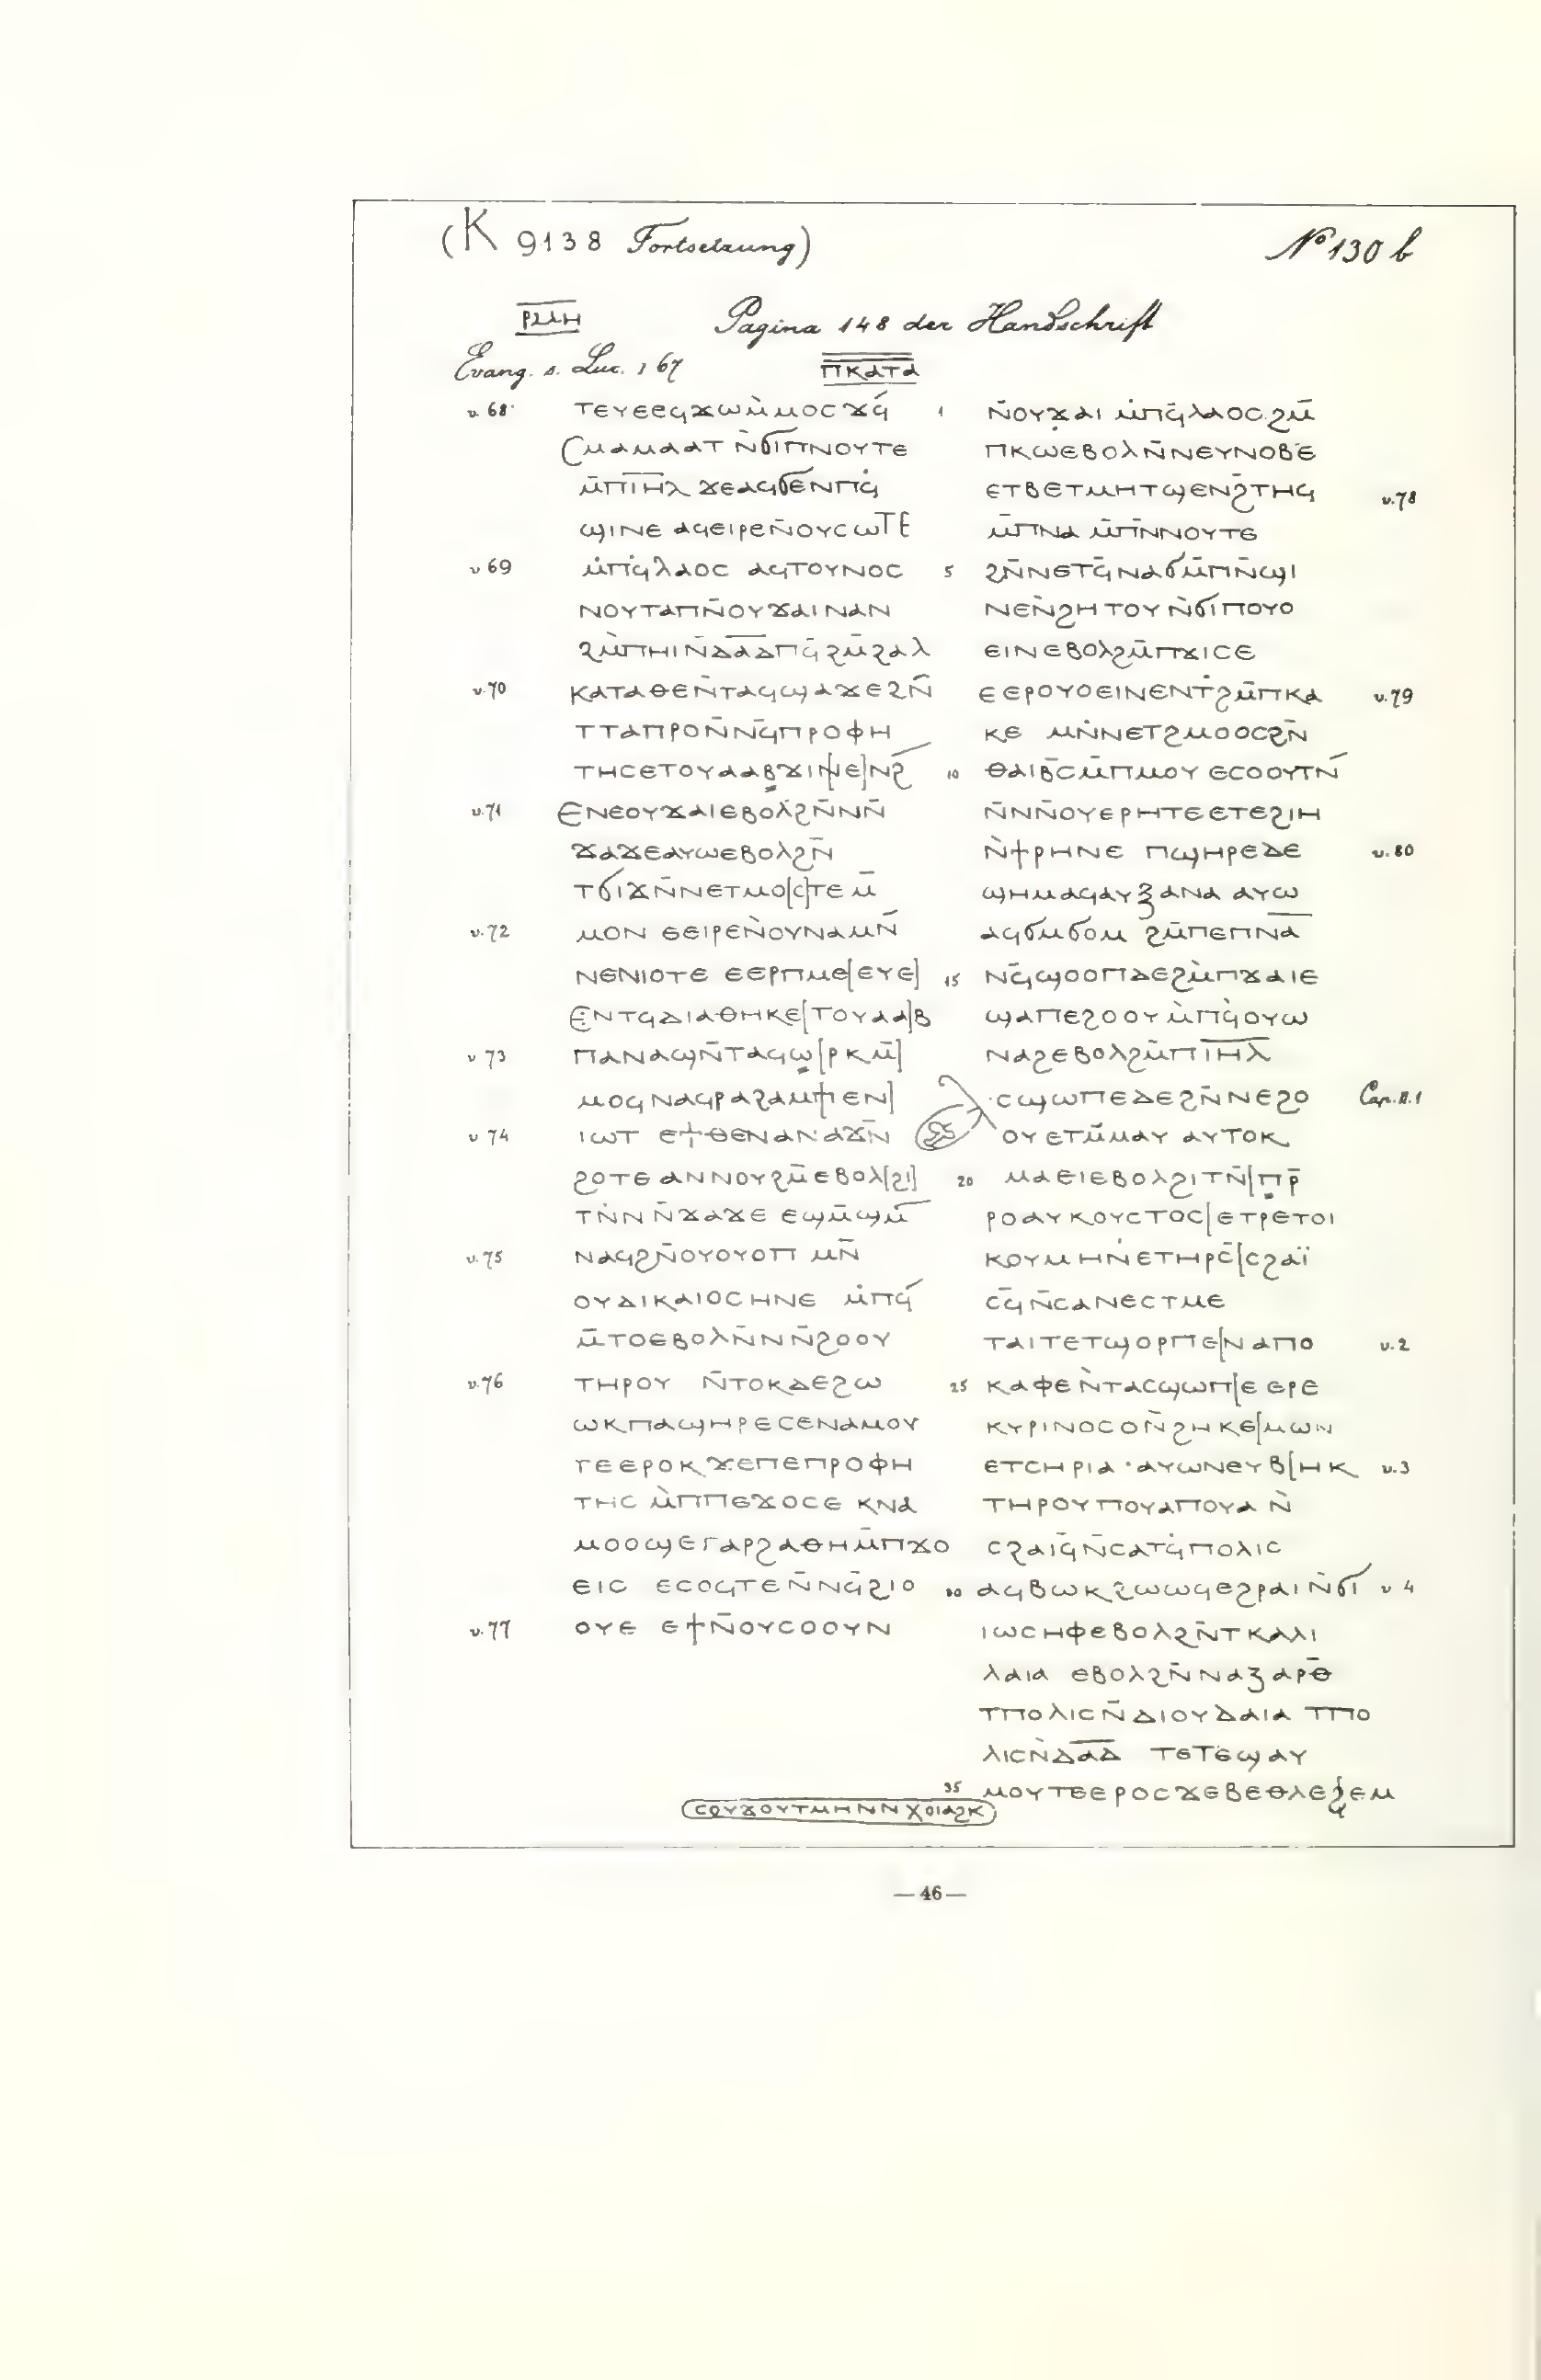 (K 9138 Fortsetzung)
№ 130 b
ⲣⲙⲏ
Pagina 148 der Handschrift
Evang. s. Luc. 1 67
ⲡⲕⲁⲧⲁ
v. 68 ⲧⲉⲩⲉⲉϥϫⲱⲙ̀ⲙⲟⲥ ϫϥ̄
ⲥⲙⲁⲙⲁⲁⲧ ⲛ̀ϭⲓⲡⲛⲟⲩⲧⲉ
ⲙ̄ⲡⲓ̅ⲏ̅ⲗ̅ ϫⲉⲁϥϭⲉⲛⲡϥ̇
ϣⲓⲛⲉ ⲁϥⲉⲓⲣⲉⲛ̄ⲟⲩⲥⲱⲧⲉ
v 69 ⲙ̇ⲡϥ̇ⲗⲁⲟⲥ ⲁϥⲧⲟⲩⲛⲟⲥ
ⲛⲟⲩⲧⲁⲡⲛ̄ⲟⲩϫⲁⲓⲛⲁⲛ
ϩⲙ̀ⲡⲏⲓⲛ̄ⲇ̅ⲁ̅ⲇ̅ⲡϥ̄ϩⲙ̄ϩⲁⲗ
v. 70 ⲕⲁⲧⲁⲑⲉⲛ̄ⲧⲁϥϣⲁϫⲉϩⲛ̄
ⲧⲧⲁⲡⲣⲟⲛ̄ⲛϥ̄ⲡⲣⲟⲫⲏ
ⲧⲏⲥⲉⲧⲟⲩⲁⲁⲃϫⲓⲛ[ⲉ]ⲛϩ̄
v. 71 ⲉⲛⲉⲟⲩϫⲁⲓⲉⲃⲟⲗϩⲛ̄ⲛⲛ̄
ϫⲁϫⲉⲁⲩⲱⲉⲃⲟⲗϩⲛ̄
ⲧϭⲓϫⲛ̄ⲛⲉⲧⲙⲟ[ⲥ]ⲧⲉ ⲙ̄
v. 72 ⲙⲟⲛ ⲉⲉⲓⲣⲉⲛ̀ⲟⲩⲛⲁⲙⲛ̄
ⲛⲉⲛⲓⲟⲧⲉ ⲉⲉⲣⲡⲙⲉ[ⲉⲩⲉ]
ⲉⲛⲧϥⲇⲓⲁⲑⲏⲕⲉ[ⲧⲟⲩⲁⲁ]ⲃ
v 73 ⲡⲁⲛⲁϣⲛ̄ⲧⲁϥⲱ[ⲣⲕⲙ̄]
ⲙⲟϥⲛⲁϥⲣⲁϩⲁⲙⲡ[ⲉⲛ]
v 74 ⲓⲱⲧ ⲉϯⲑⲉⲛⲁⲛⲁϫⲛ̄
ϩⲟⲧⲉ ⲁⲛⲛⲟⲩϩⲙ̄ⲉⲃⲟⲗ[ϩⲓ]
ⲧⲛ̀ⲛⲛ̄ϫⲁϫⲉ ⲉϣⲙ̄ϣⲙ̄
v. 75 ⲛⲁϥϩⲛ̄ⲟⲩⲟⲩⲟⲡ ⲙⲛ̄
ⲟⲩⲇⲓⲕⲁⲓⲟⲥⲏⲛⲉ ⲙ̇ⲡϥ̄
ⲙ̄ⲧⲟⲉⲃⲟⲗⲛ̄ⲛⲛ̄ϩⲟⲟⲩ
v. 76 ⲧⲏⲣⲟⲩ ⲛ̄ⲧⲟⲕⲇⲉϩⲱ
ⲱⲕⲡⲁϣⲏⲣⲉⲥⲉⲛⲁⲙⲟⲩ
ⲧⲉⲉⲣⲟⲕ ϫⲉⲡⲉⲡⲣⲟⲫⲏ
ⲧⲏⲥ ⲙ̀ⲡⲡⲉϫⲟⲥⲉ ⲕⲛⲁ
ⲙⲟⲟϣⲉⲅⲁⲣϩⲁⲑⲏⲙ̄ⲡϫⲟ
ⲉⲓⲥ ⲉⲥⲟϥⲧⲉⲛ̄ⲛϥ̄ϩⲓⲟ
v. 77 ⲟⲩⲉ ⲉϯⲛ̄ⲟⲩⲥⲟⲟⲩⲛ
1 ⲛ̄ⲟⲩϫⲁⲓ ⲙ̇ⲡϥ̄ⲗⲁⲟⲥ.ϩⲙ̄
ⲡⲕⲱⲉⲃⲟⲗⲛ̄ⲛⲉⲩⲛⲟⲃⲉ
ⲉⲧⲃⲉⲧⲙⲏⲧϣⲉⲛϩ̄ⲧⲏϥ v. 78
ⲙ̄ⲡⲛⲁ ⲙ̄ⲡⲛ̄ⲛⲟⲩⲧⲉ
5 ϩⲛ̄ⲛⲉⲧϥ̄ⲛⲁϭⲙ̄ⲡⲛ̄ϣⲓ
ⲛⲉⲛ̀ϩⲏⲧⲟⲩ ⲛ̀ϭⲓⲡⲟⲩⲟ
ⲉⲓⲛⲉⲃⲟⲗϩⲙ̄ⲡϫⲓⲥⲉ
ⲉⲉⲣⲟⲩⲟⲉⲓⲛⲉⲛⲧ̇ϩⲙ̄ⲡⲕⲁ v. 79
ⲕⲉ ⲙⲛ̀ⲛⲉⲧϩⲙⲟⲟⲥϩⲛ̄
10 ⲑⲁⲓⲃ̄ⲥⲙ̄ⲡⲙⲟⲩ ⲉⲥⲟⲟⲩⲧⲛ̄
ⲛ̄ⲛⲛ̄ⲟⲩⲉⲣⲏⲧⲉⲉⲧⲉϩⲓⲏ
ⲛ̀ϯⲣⲏⲛⲉ ⲡϣⲏⲣⲉⲇⲉ v. 80
ϣⲏⲙⲁϥⲁⲩⲝⲁⲛⲁ ⲁⲩⲱ
ⲁϥϭⲙϭⲟⲙ ϩⲙ̄ⲡⲉⲡ̅ⲛ̅ⲁ̅
15 ⲛϥ̄ϣⲟⲟⲡⲇⲉϩⲙ̀ⲡϫⲁⲓⲉ
ϣⲁⲡⲉϩⲟⲟⲩ ⲙ̀ⲡϥ̇ⲟⲩⲱ
ⲛⲁϩⲉⲃⲟⲗϩⲙ̄ⲡⲓ̅ⲏ̅ⲗ̅
ⲥϣⲱⲡⲉⲇⲉϩⲛ̄ⲛⲉϩⲟ Cap. II. 1
ⲟⲩ ⲉⲧⲙ̄ⲙⲁⲩ ⲁⲩⲧⲟⲕ
20 ⲙⲁⲉⲓⲉⲃⲟⲗϩⲓⲧⲛ̄[ⲡⲣ̄
ⲣⲟⲁⲩⲕⲟⲩⲥⲧⲟⲥ[ⲉⲧⲣⲉⲧⲟⲓ
ⲕⲟⲩⲙⲏⲛ̇ⲉⲧⲏⲣⲥ̄[ⲥϩⲁⲓ̈
ⲥϥ̄ⲛ̄ⲥⲁⲛⲉⲥⲧⲙⲉ
ⲧⲁⲓⲧⲉⲧϣⲟⲣⲡⲉ[ⲛⲁⲡⲟ v. 2
25 ⲕⲁⲫⲉⲛ̀ⲧⲁⲥϣⲱⲡ[ⲉ ⲉⲣⲉ
ⲕⲩⲣⲓⲛⲟⲥⲟⲛ̄ϩⲏⲕⲉ[ⲙⲱⲛ
ⲉⲧⲥⲏⲣⲓⲁ·ⲁⲩⲱⲛⲉⲩⲃ[ⲏⲕ v. 3
ⲧⲏⲣⲟⲩⲡⲟⲩⲁⲡⲟⲩⲁ ⲛ̀
ⲥϩⲁⲓϥ̄ⲛ̄ⲥⲁⲧϥ̇ⲡⲟⲗⲓⲥ
30 ⲁϥⲃⲱⲕϩⲱⲱϥⲉϩⲣⲁⲓⲛ̀ϭⲓ v 4
ⲓⲱⲥⲏⲫⲉⲃⲟⲗϩⲛ̄ⲧⲕⲁⲗⲓ
ⲗⲁⲓⲁ ⲉⲃⲟⲗϩⲛ̄ⲛⲁⲍⲁⲣⲑ̄
ⲧⲡⲟⲗⲓⲥⲛ̄ⲇⲓⲟⲩⲇⲁⲓⲁ ⲧⲡⲟ
ⲗⲓⲥⲛ̀ⲇ̅ⲁ̅ⲇ̅ ⲧⲉⲧⲉϣⲁⲩ
35 ⲙⲟⲩⲧⲉⲉⲣⲟⲥϫⲉⲃⲉⲑⲗⲉϩⲉⲙ
ⲥⲟⲩϫⲟⲩⲧⲙⲏⲛⲛⲭⲟⲓⲁϩⲕ
— 46 —